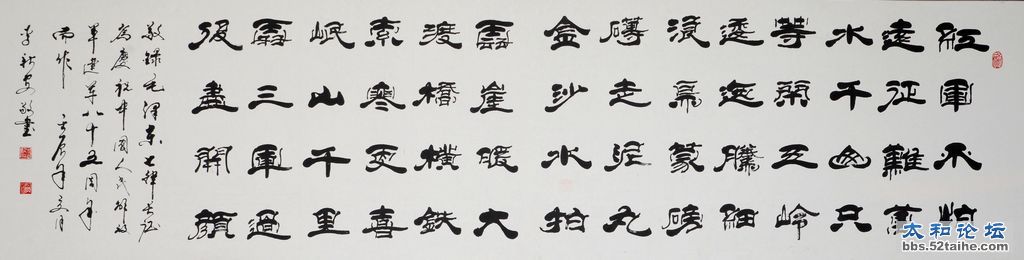 紅軍不怕
遠征難萬
水千山只
等閑五嶺
逶迤騰細
浪烏蒙磅
礴走泥丸
金沙水拍
雲崖暖大
渡橋橫鐵
索寒更喜
岷山千里
雪三軍過
後盡開顏
敬録毛澤東七律長征
為慶祝中國人民解放
軍建軍八十五周年
而作 壬辰年月
李秋敬書
太和论坛
bbs.52taihe.com